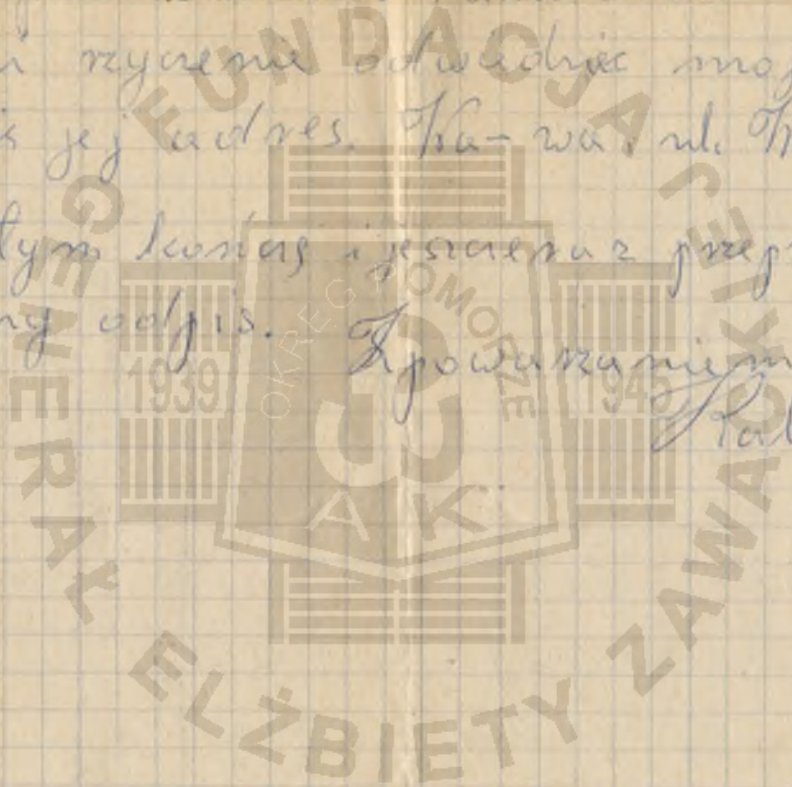 i rzyczenie odwiedzić moj
jej adres. Wa-wa, ul.
tym kończę i jeszcze raz przepr
ny odpis. Zpowarzaniem
FUNDACJA GENERAŁ ELŻBIETY ZAWACKIEJ
OKRĘG POMORZE
1939 1945
AK